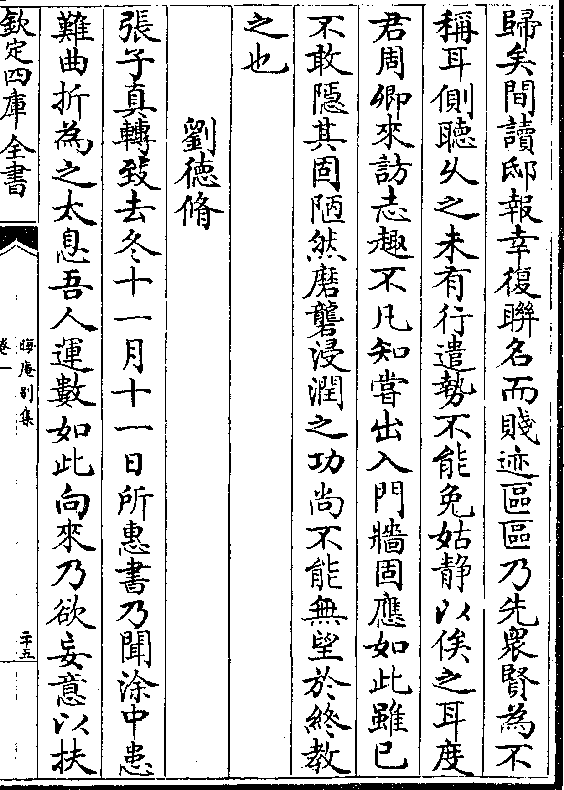 歸矣間讀邸報幸復聯名而賤迹區區乃先衆賢為不
稱耳側聽久之未有行遣勢不能免姑静以俟之耳度
君周卿來訪志趣不凡知嘗出入門牆固應如此雖已
不敢隱其固陋然磨礱浸潤之功尚不能無望於終教
之也
劉德脩
張子真轉致去冬十一月十一日所惠書乃聞涂中患
難曲折為之太息吾人運數如此向來乃欲妄意以扶
欽定四庫全書
晦庵别集
卷一
二十五